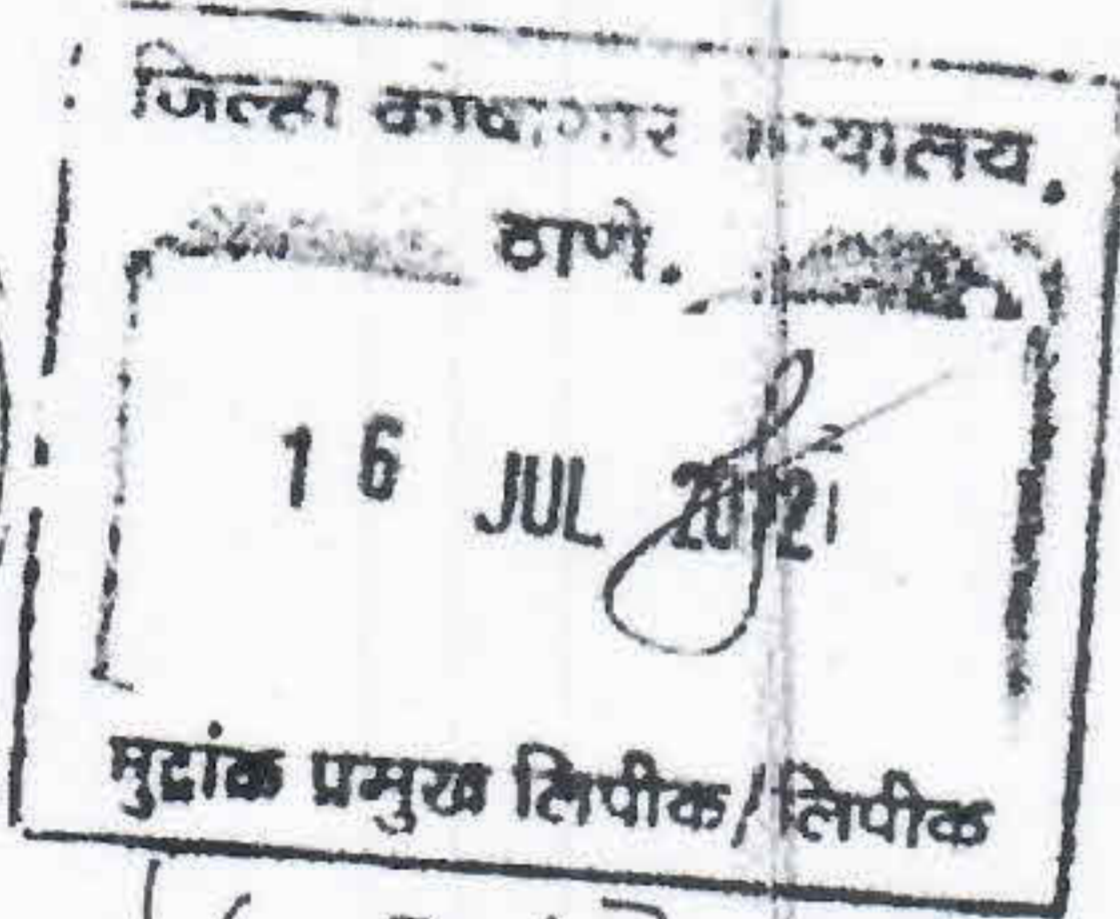 जिल्हा कोषागार कार्यालय.
ठाणे.
16 JUL 2012
मुद्रांक प्रमुख लिपीक/लिपीक